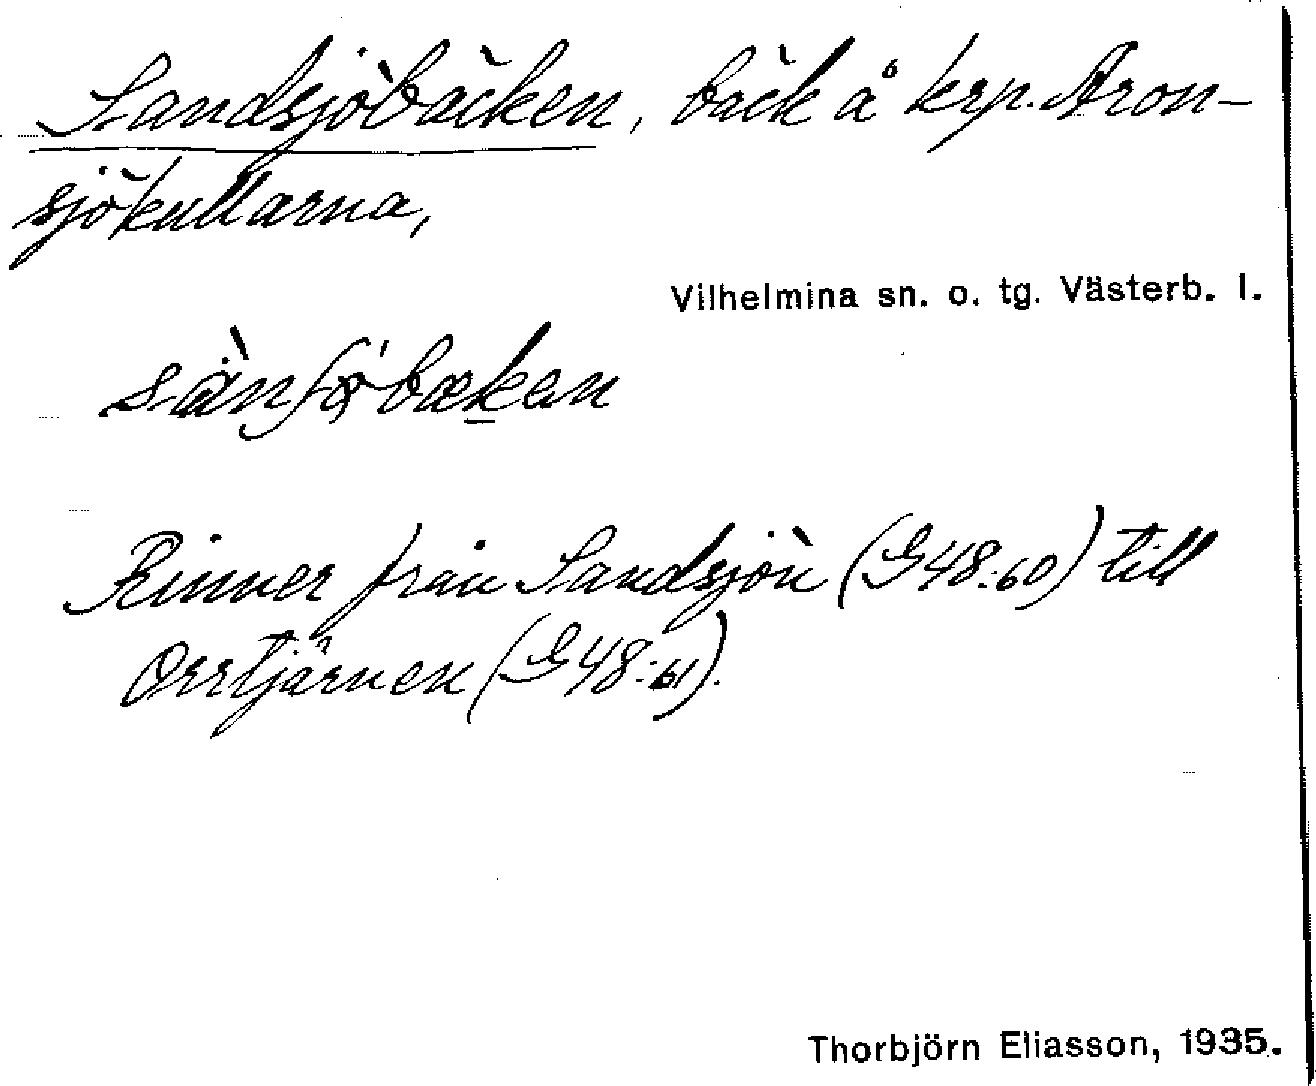 Sandsjöbäcken, bäck å krp. Aron-
sjökullarna,
Vilhelmina sn. o. tg. Västerb. l.
Rinner från Sandsjön (G48:60) till
Orrtjärnen (G48:61).
Thorbjörn Eliasson, 1935.